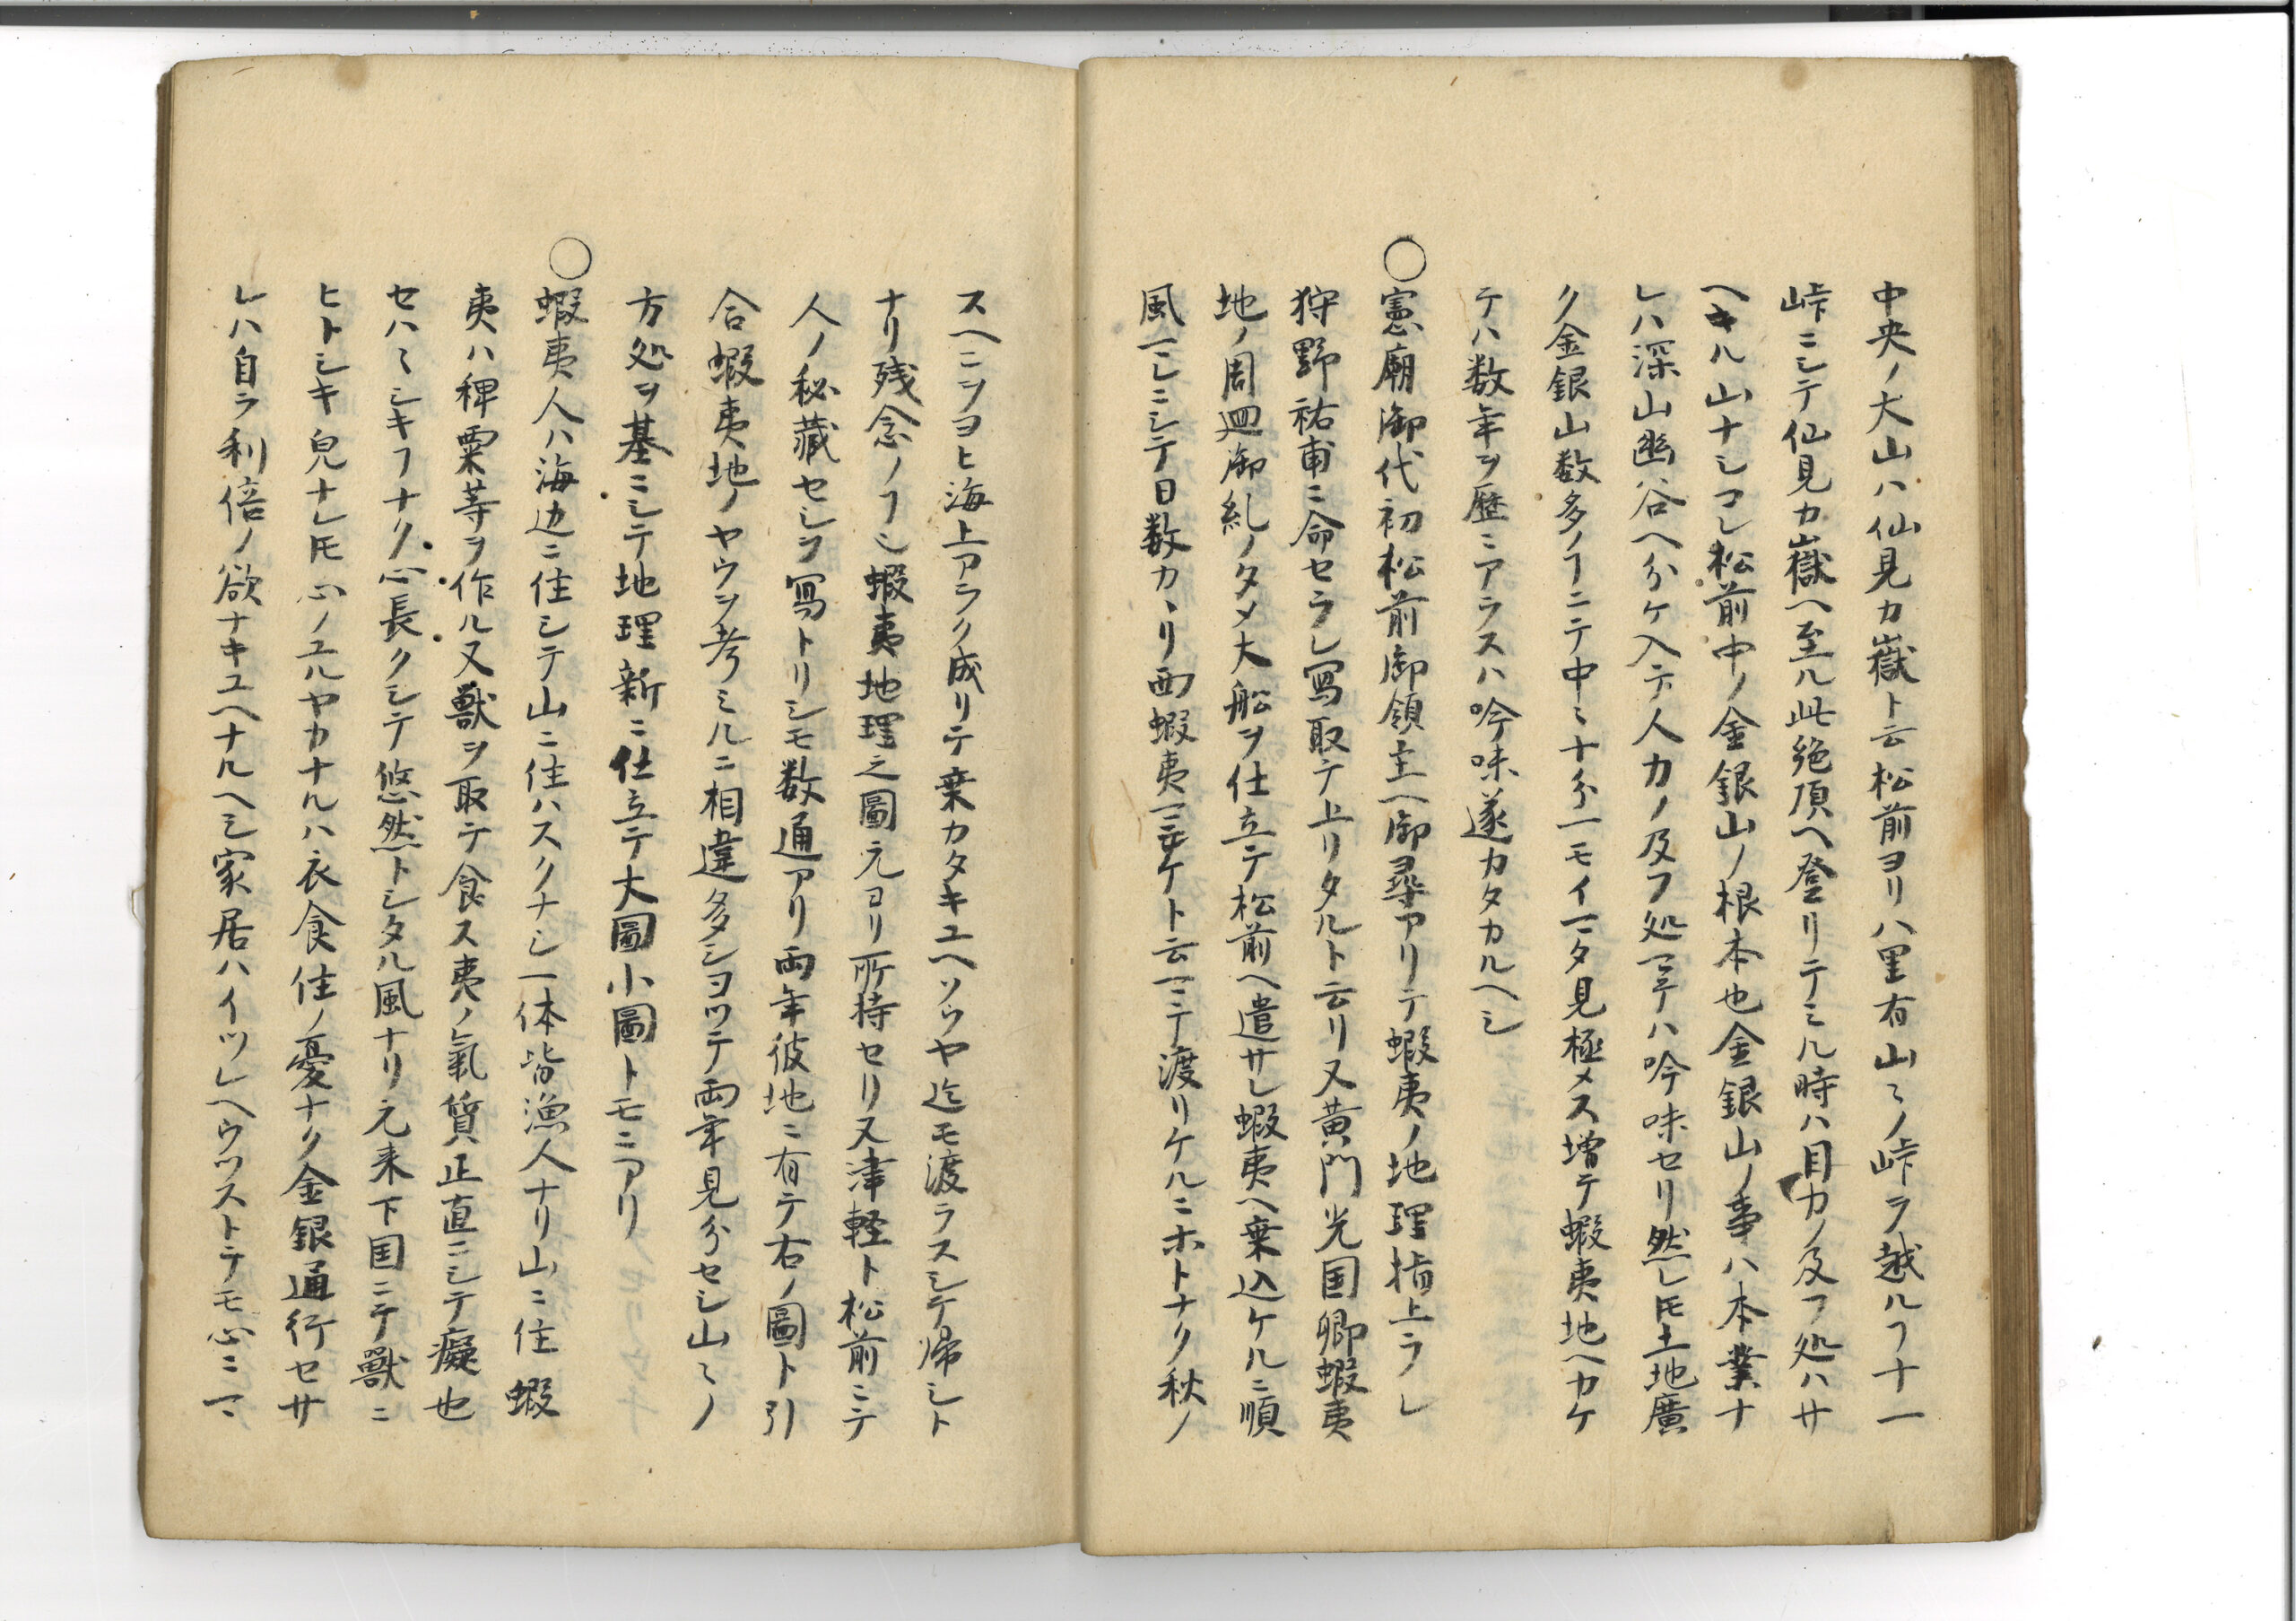 中央ノ大山ハ仙見カ嶽ト云松前ヨリハ里有山〻ノ峠ヲ越ルヿ十一
峠ニシテ仙見カ嶽ヘ至ル此絶頂ヘ登リテミル時ハ目力ノ及フ処ハサ
ヘキル山ナシコレ松前中ノ金銀山ノ根本也金銀山ノ事ハ本業ナ
レハ深山幽谷ヘ分ケ入テ人力ノ及フ処マテハ吟味セリ然レ𪜈土地廣
ク金銀山数多ノヿニテ中〻十分一モイマタ見極メス増テ蝦夷地ヘカケ
テハ数年ヲ歴ニアラスハ吟味遂カタカルヘシ
○憲廟御代初松前御領主ヘ御尋アリテ蝦夷ノ地理指上ラレ
狩野祐甫ニ命セラレ寫取テ上リタルト云リ又黄門光国卿蝦夷
地ノ周廻御糺ノタメ大船ヲ仕立テ松前ヘ遣サレ蝦夷ヘ乗込ケルニ順
風マレニシテ日数カヽリ西蝦夷マシケト云マテ渡リケルニホトナク秋ノ
スヘニヲヨヒ海上アラク成リテ乗カタキユヘソウヤ迄モ渡ラスシテ帰シト
ナリ残念ノヿシ蝦夷地理之圖元ヨリ所持セリ又津軽ト松前ニテ
人ノ秘藏セシヲ寫トリシモ数通アリ両年彼地ニ有テ右ノ圖ト引
合蝦夷地ノヤウヲ考ミルニ相違多シヨツテ両年見分セシ山〻ノ
方処ヲ基ニシテ地理新ニ仕立テ大圖小圖トモニアリ
○蝦夷人ハ海边ニ住シテ山ニ住ハスクナシ一体皆漁人ナリ山ニ住蝦
夷ハ稗粟䒭ヲ作ル又獣ヲ取テ食ス夷ノ氣質正直ニシテ癡也
セハ〻シキヿナク心長クシテ悠然トシタル風ナリ元来下国ニテ獸ニ
ヒトシキ皃ナレ𪜈心ノユルヤカナルハ衣食住ノ憂ナク金銀通行セサ
レハ自ラ利倍ノ欲ナキユヘナルヘシ家居ハイツレヘウツストテモ心ニマ